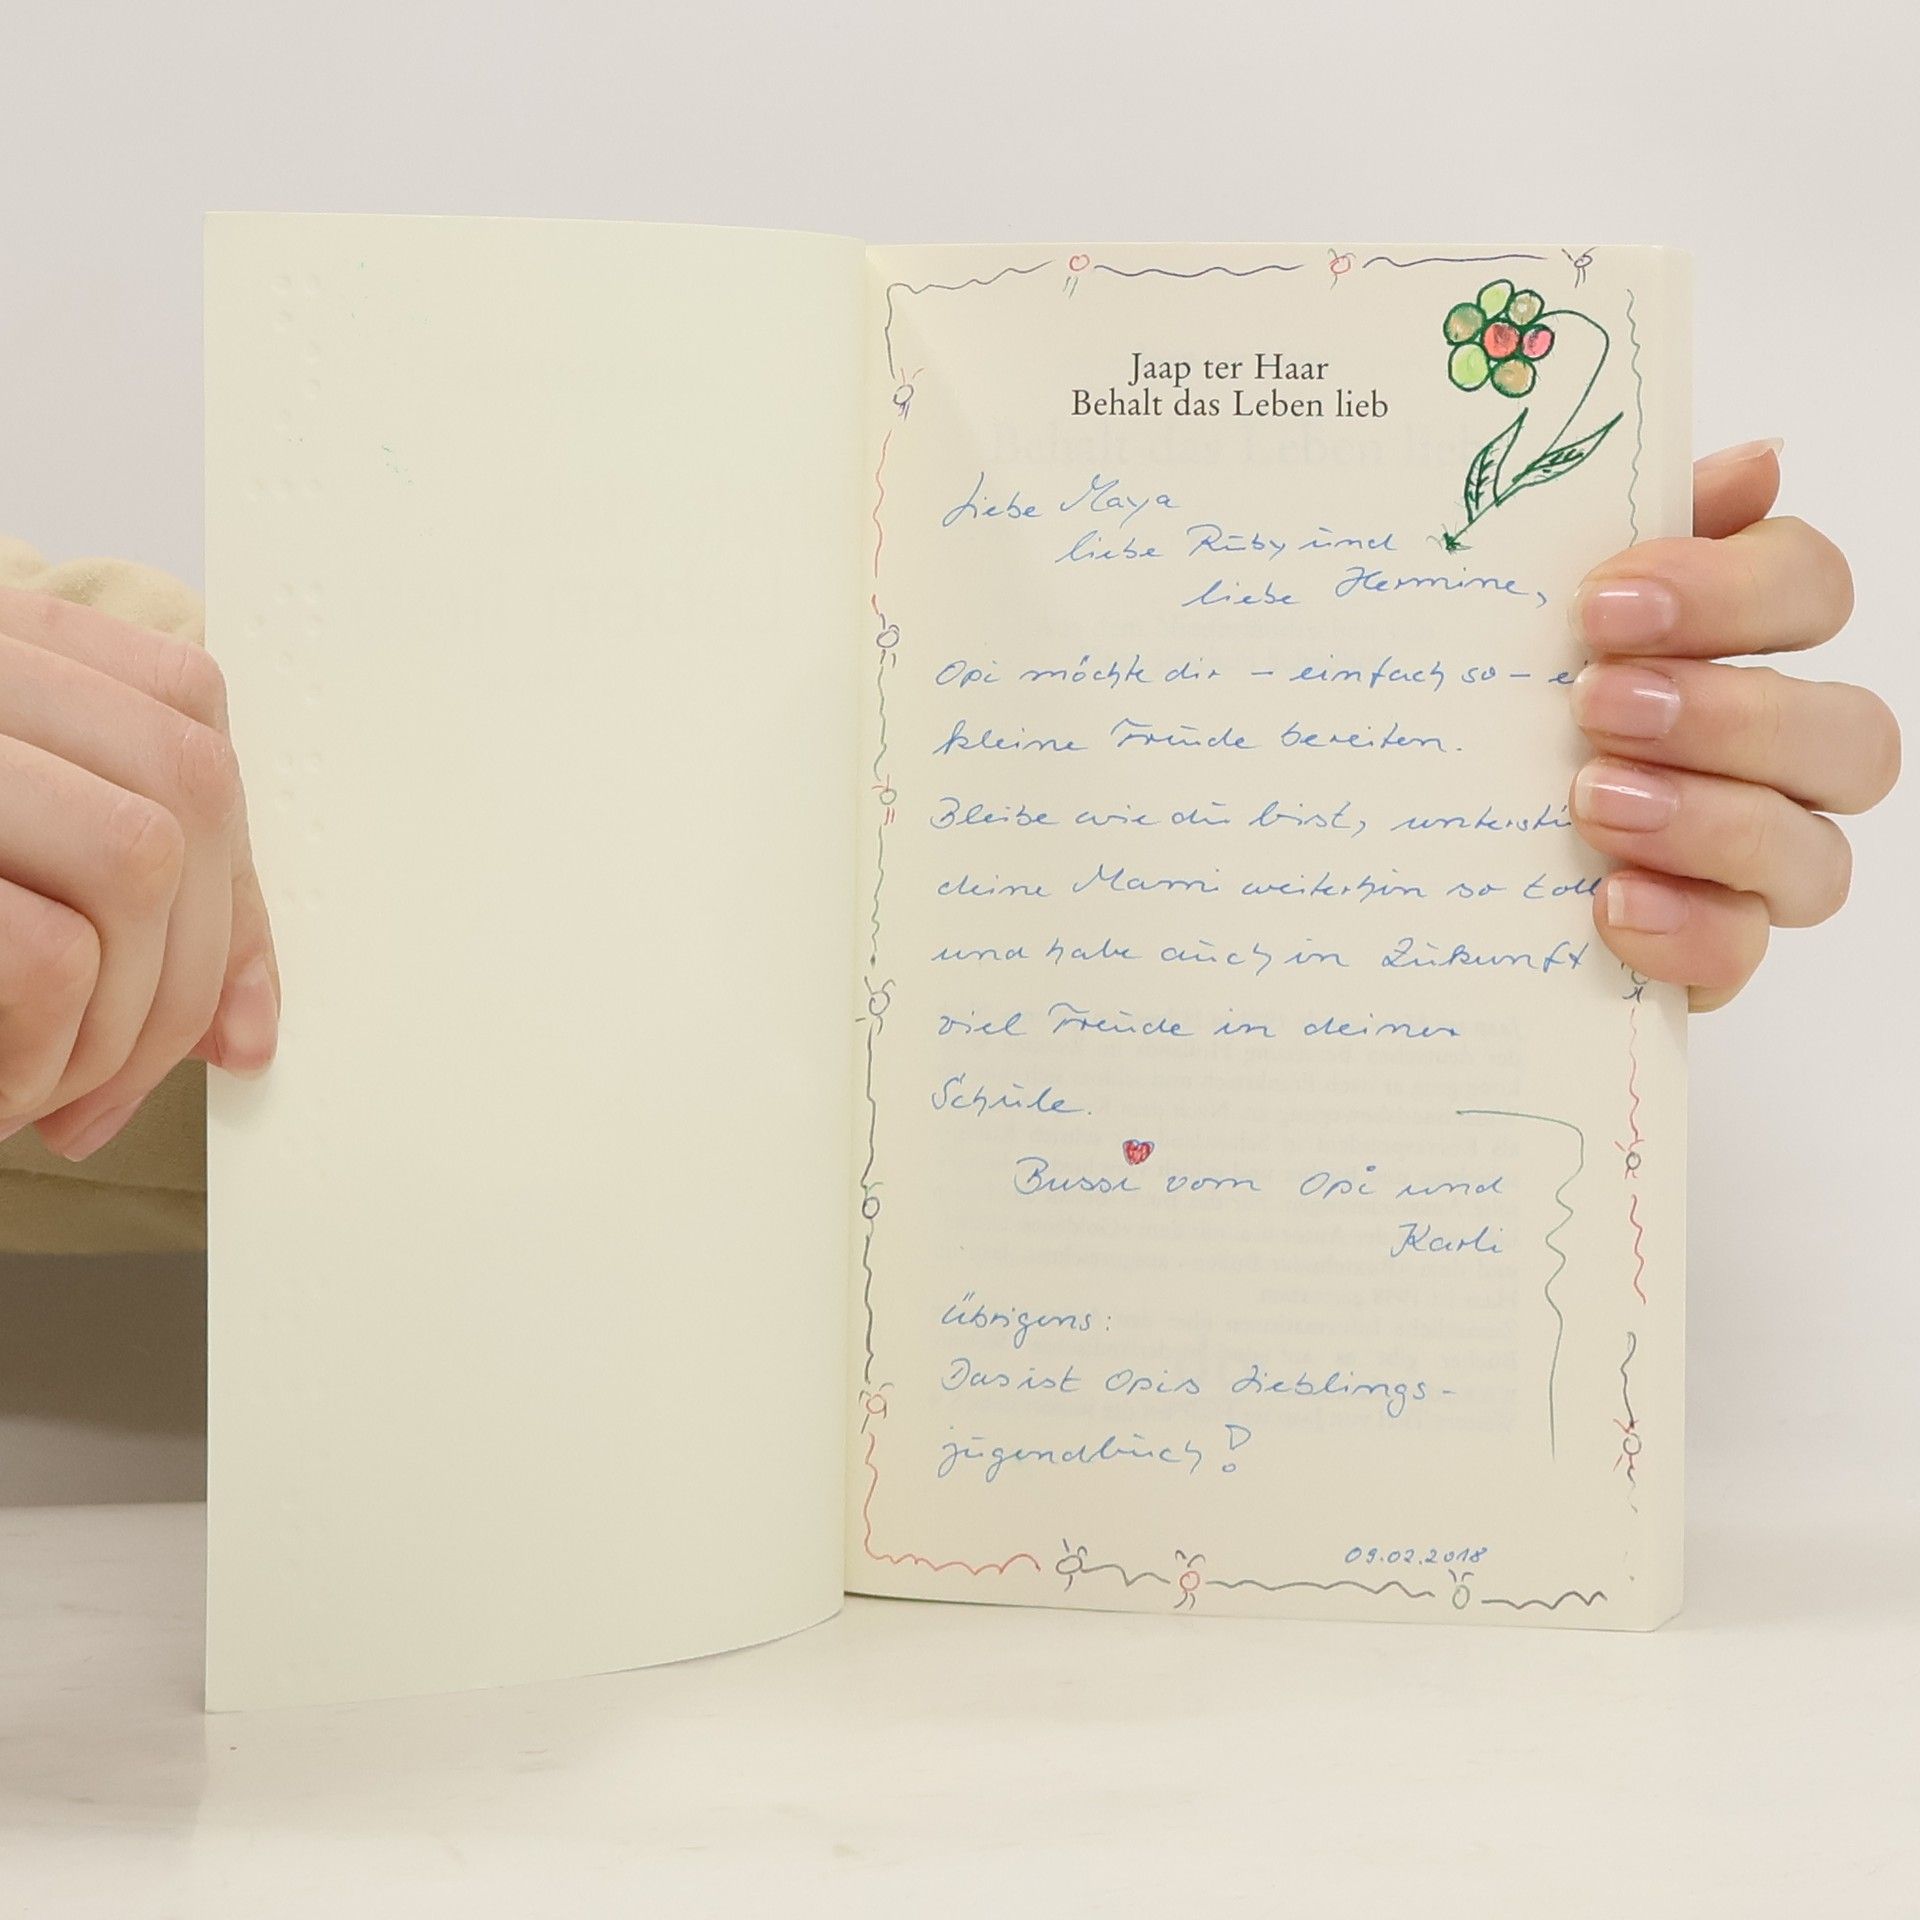 Jaap ter Haar
Behalt das Leben lieb
Liebe Maya
liebe Ruby und
liebe Hermine,
Opi möchte dir – einfach so –
kleine Freude bereiten.
Bleibe wie du bist,
deine Mami weiterhin so toll
und habe auch in Zukunft
viel Freude in deiner
Schule.
Bussi vom Opi und
Karli
Übrigens:
Das ist Opis Lieblings-
jugendbuch!
09.02.2018